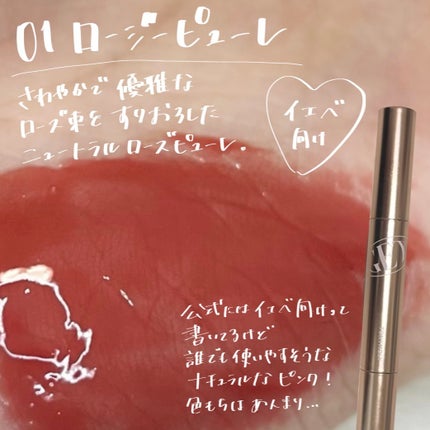 01 ロージーピューレ
さわやかで優雅な
ローズ束をすりおろした
ニュートラルローズピューレ。
イエベ
向け
公式にはイエベ向けって
書いてるけど
誰でも使いやすそうな
ナチュラルなピンク!
色もちはあんまり...